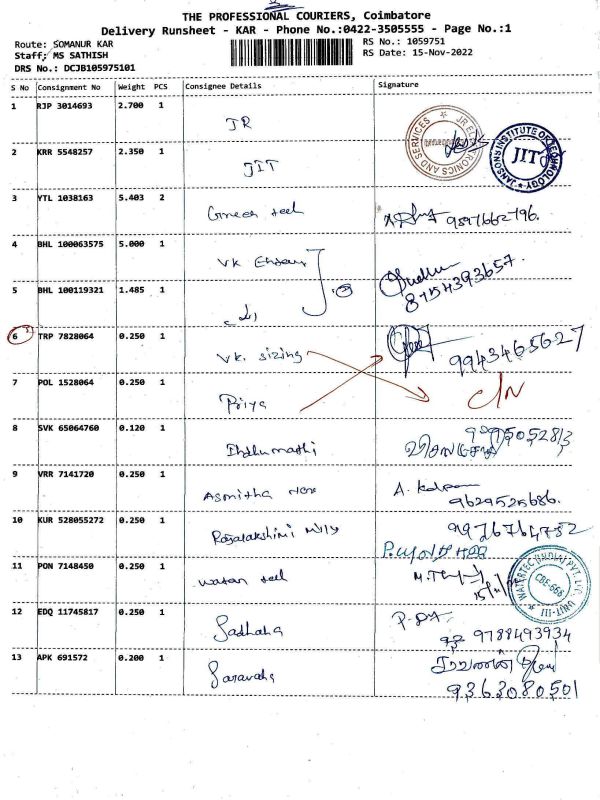 THE PROFESSIONAL COURIERS, Coimbatore
Delivery Runsheet - KAR - Phone No.:0422-3505555 - Page No.:1
Route: SOMANUR KAR
RS No.: 1059751
Staff: MS SATHISH
RS Date: 15-Nov-2022
DRS No.: DCJB105975101
S No Consignment No Weight PCS Consignee Details Signature
1 RJP 3014693 2.700 1 JR
JR ELECTRONICS AND SERVICES
2 KRR 5548257 2.350 1 JIT
JANSONS INSTITUTE OF TECHNOLOGY JIT
3 YTL 1038163 5.403 2 Green teel 9597662796.
4 BHL 100063575 5.000 1 VK
8754393657.
5 BHL 100119321 1.485 1
6 TRP 7828064 0.250 1 VK. sizing 9943465627
7 POL 1528064 0.250 1 Priya C/N
8 SVK 65064760 0.120 1 Indhumathi
9 VRR 7141720 0.250 1 Asmitha A.
9629525686.
10 KUR 528055272 0.250 1 Rajalakshimi 9976764752
11 PON 7148450 0.250 1 teel M.T
WATERTEC (INDIA) PVT. LTD. UNIT-III
12 EDQ 11745817 0.250 1 Sadhana
9788493934
13 APK 691572 0.200 1 சரவணன்
9363080501